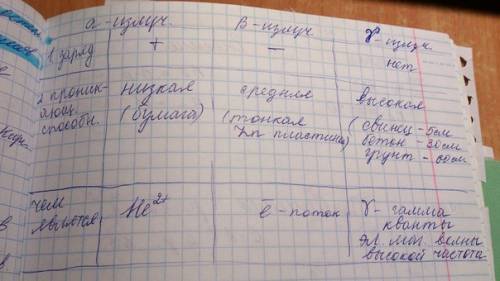 α - излуч. β - излуч. γ - излуч.
1. заряд + − нет
2 проник- низкая средняя высокая
способн. (бумага) (тонкая (свинец - 5см
Zn пластина) бетон - 30см
грунт - 60см
чем He²⁺ ē - поток γ - гамма
является кванты
эл. маг. волны
высокой частота